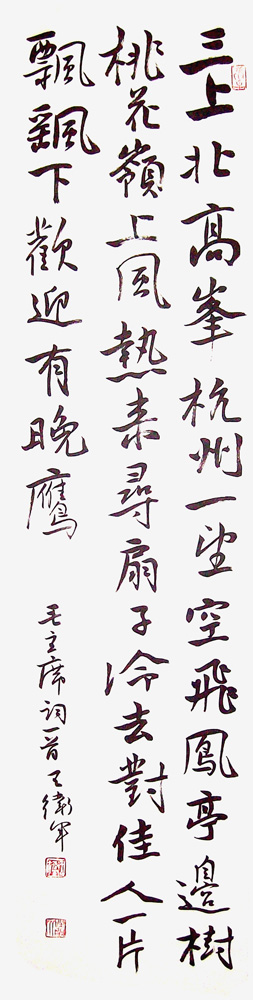 三上北高峯杭州一望空飛鳳亭邊樹
桃花嶺上風熱來尋扇子冷去對佳人一片
飄飄下歡迎有晚鷹
毛主席詞一首王衛軍